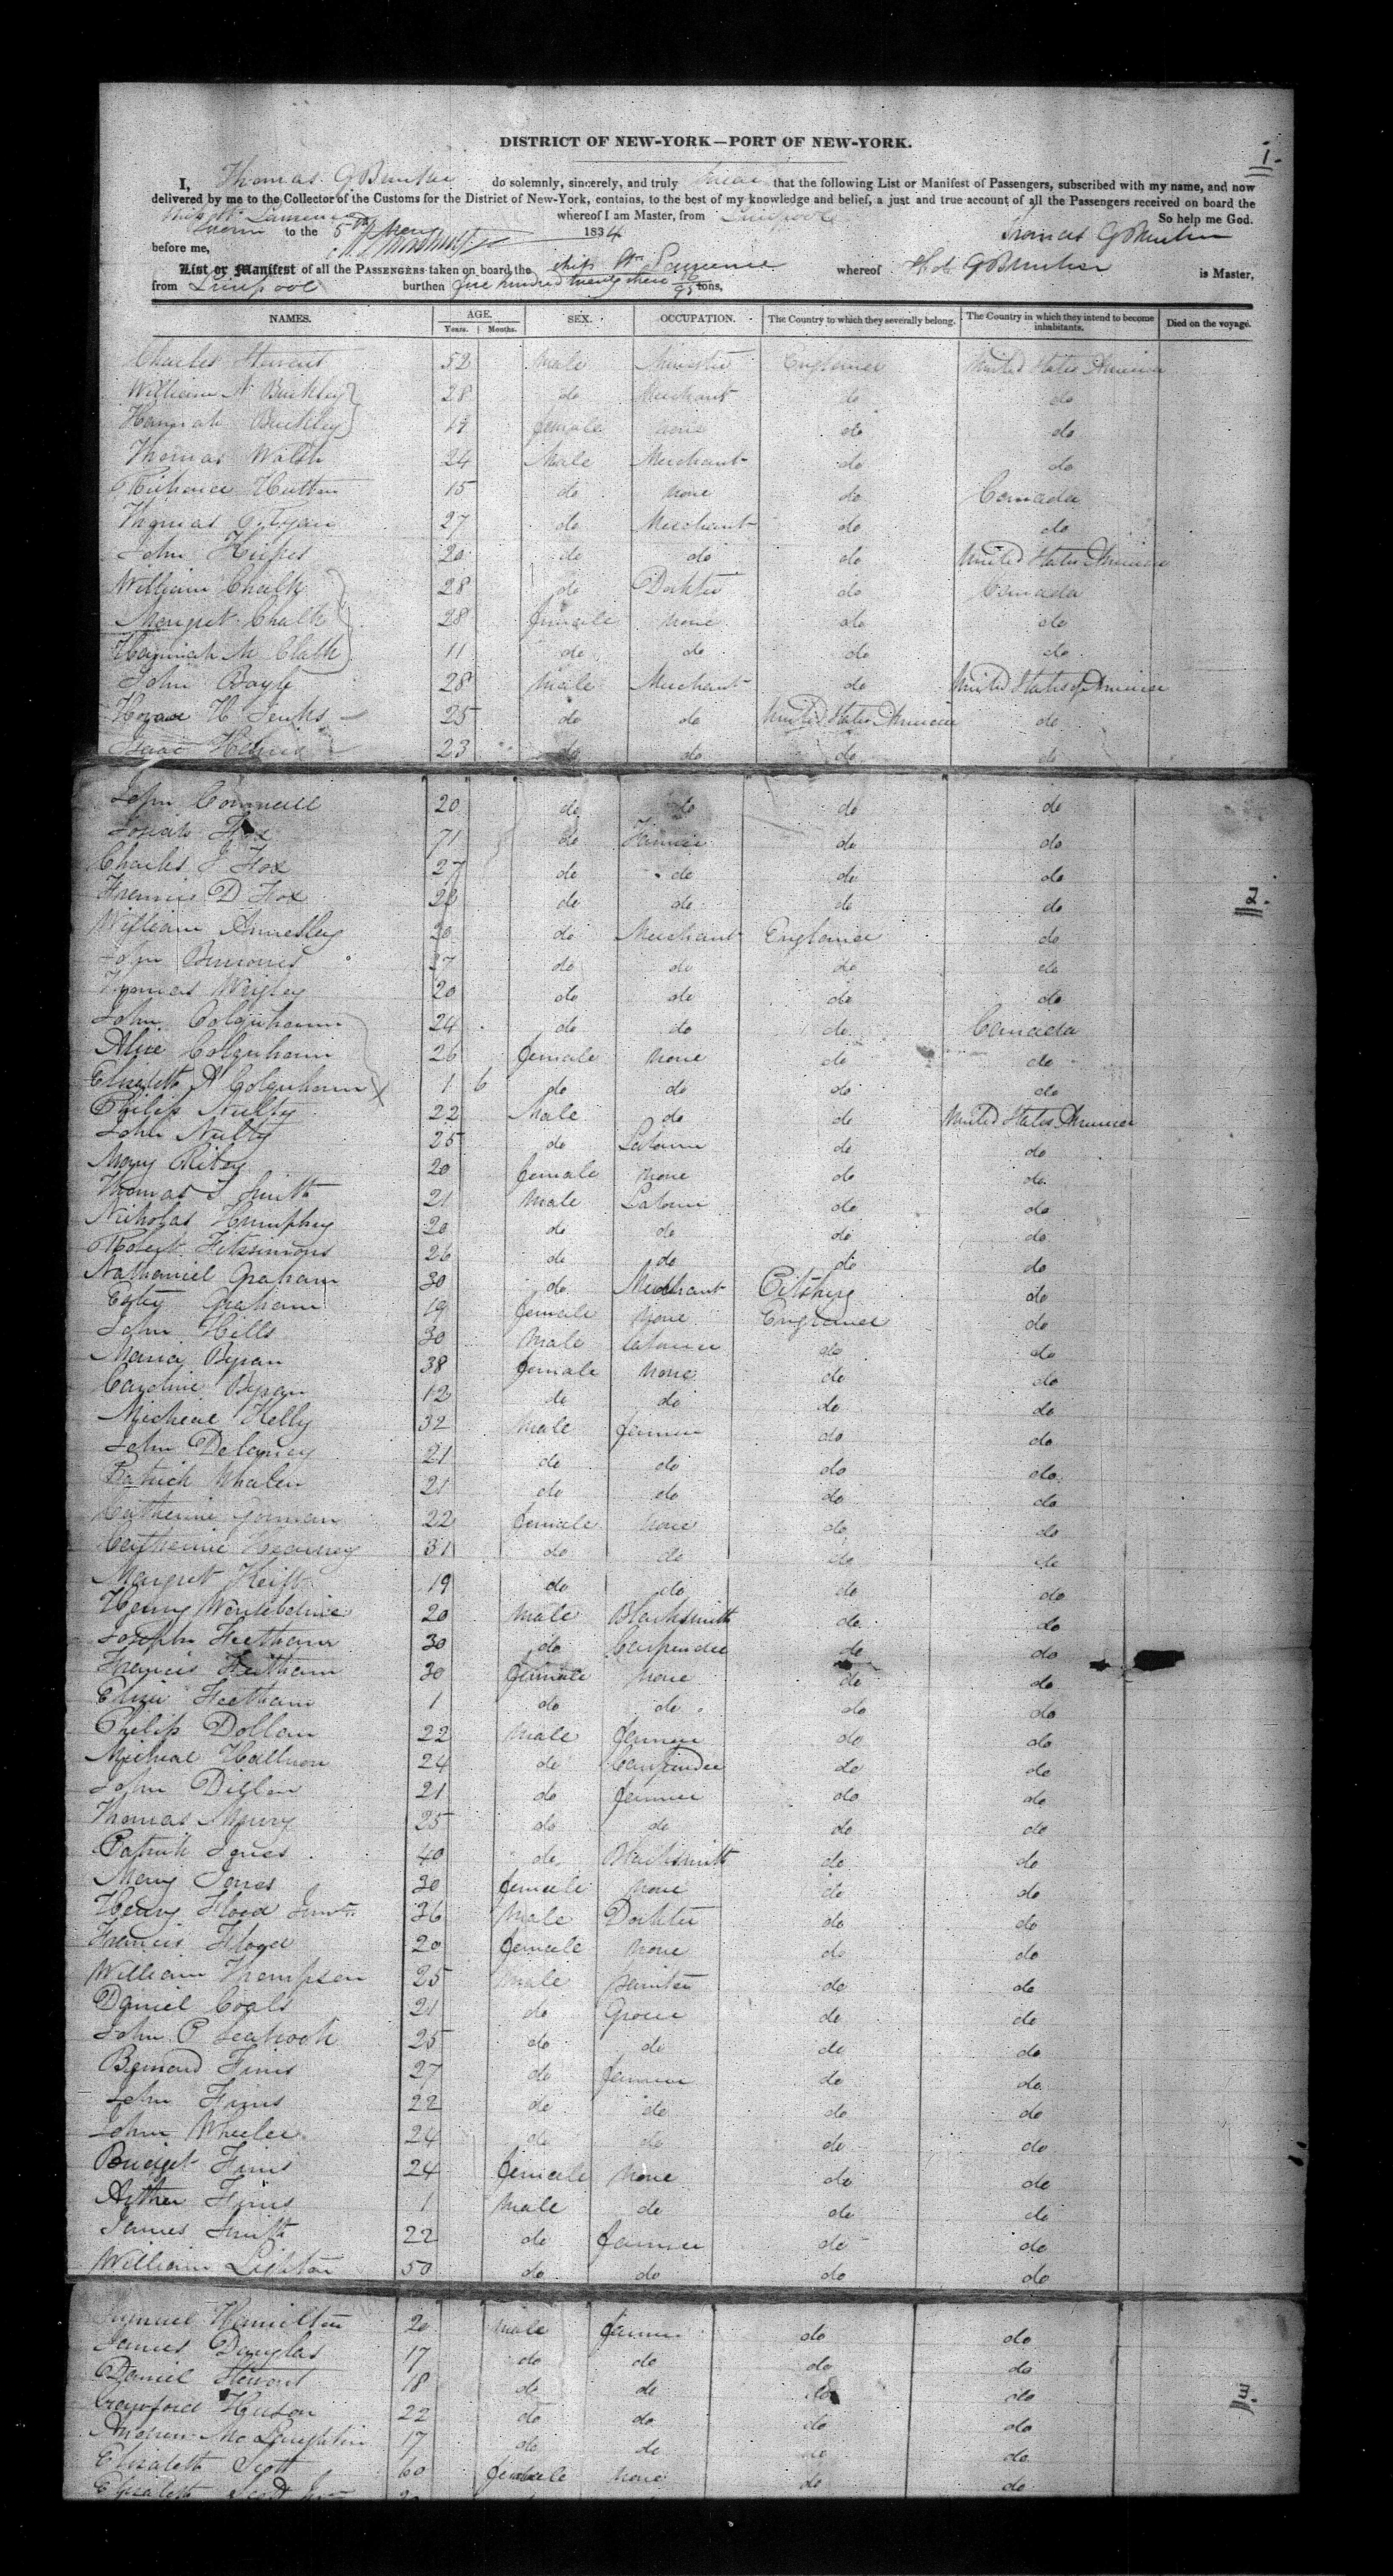 1.
DISTRICT OF NEW-YORK—PORT OF NEW-YORK.
I, Thomas G Bunker do solemnly, sincerely, and truly swear that the following List or Manifest of Passengers, subscribed with my name, and now
delivered by me to the Collector of the Customs for the District of New-York, contains, to the best of my knowledge and belief, a just and true account of all the Passengers received on board the
whereof I am Master, from Liverpool So help me God.
Sworn to the 5th May 1834 Thomas G Bunker
before me,
List or Manifest of all the PASSENGERS taken on board the ship St Lawrence whereof Tho G Bunker is Master,
from Liverpool burthen five hundred twenty three /95 tons,
NAMES. AGE. Years. Months. SEX. OCCUPATION. The Country to which they severally belong. The Country in which they intend to become inhabitants. Died on the voyage.
Charles Stewart 52 Male Minister England United States America
William Buckley 28 do Merchant do do
Hannah Buckley 19 female none do do
Thomas Walsh 24 Male Merchant do do
Richard Hutton 15 do none do Canada
Thomas 27 do Merchant do do
John 20 do do do United States America
William Chalk 28 do Dockter do Canada
Margret Chalk 28 female none do do
Hannah M Chalk 11 do do do do
John Boyle 28 Male Merchant do United States of America
H Jenks 25 do do United States America do
Isaac 23 do do do do
John 20 do do do do
Josiah Fox 71 do Farmer do do
Charles J Fox 27 do do do do
Francis D Fox 23 do do do do
2.
William Annesley 20 do Merchant England do
John 27 do do do do
Thomas Wrigley 20 do do do do
John Colquhoun 24 do do do Canada
Alice Colquhoun 26 female none do do
Elizabeth A Colquhoun 1 6 do do do do
Philip Nulty 22 Male do do United States America
John Nulty 25 do Laborer do do
Mary 20 female none do do
Thomas S Smith 21 Male Laborer do do
Nicholas Humphry 20 do do do do
Robert Fitzsimons 26 do do do do
Nathaniel Graham 30 do Merchant Pitsburg do
Graham 19 female none England do
John Hills 30 Male laborer do do
Maria Bynan 38 female none do do
Caroline Bynan 12 do do do do
Micheal Kelly 32 Male farmer do do
John Delaney 21 do do do do
Patrick Whalen 21 do do do do
Catherine Gorman 22 female none do do
Catherine Kearney 31 do do do do
Margret 19 do do do do
Henry 20 Male Blacksmith do do
Joseph Feetham 30 do Carpender do do
Francis Feetham 30 female none do do
Feetham 1 do do do do
Philip Dollan 22 Male farmer do do
Micheal 24 do Carpinder do do
John Dillon 21 do farmer do do
Thomas 25 do do do do
Patrick Jones 40 do Blacksmith do do
Mary Jones 30 female none do do
Henry Flood 36 Male Dockter do do
Francis Flood 20 female none do do
William Thompson 25 Male do do
Daniel Coals 21 do Grocer do do
John P Seabrook 25 do do do do
Bernard Finis 27 do farmer do do
John Finis 22 do do do do
John Wheeler 24 do do do do
Bridget Finis 24 female none do do
Arther Finis 1 Male do do do
James Smith 22 do farmer do do
William Lighton 50 do do do do
Samuel Hamilton 20 Male farmer do do
James Douglas 17 do do do do
Daniel Stewart 18 do do do do
3
Crawford 22 do do do do
Andrew Mc Laughlin 17 do do do do
Elizabeth Scott 60 female none do do
Elizabeth Scott